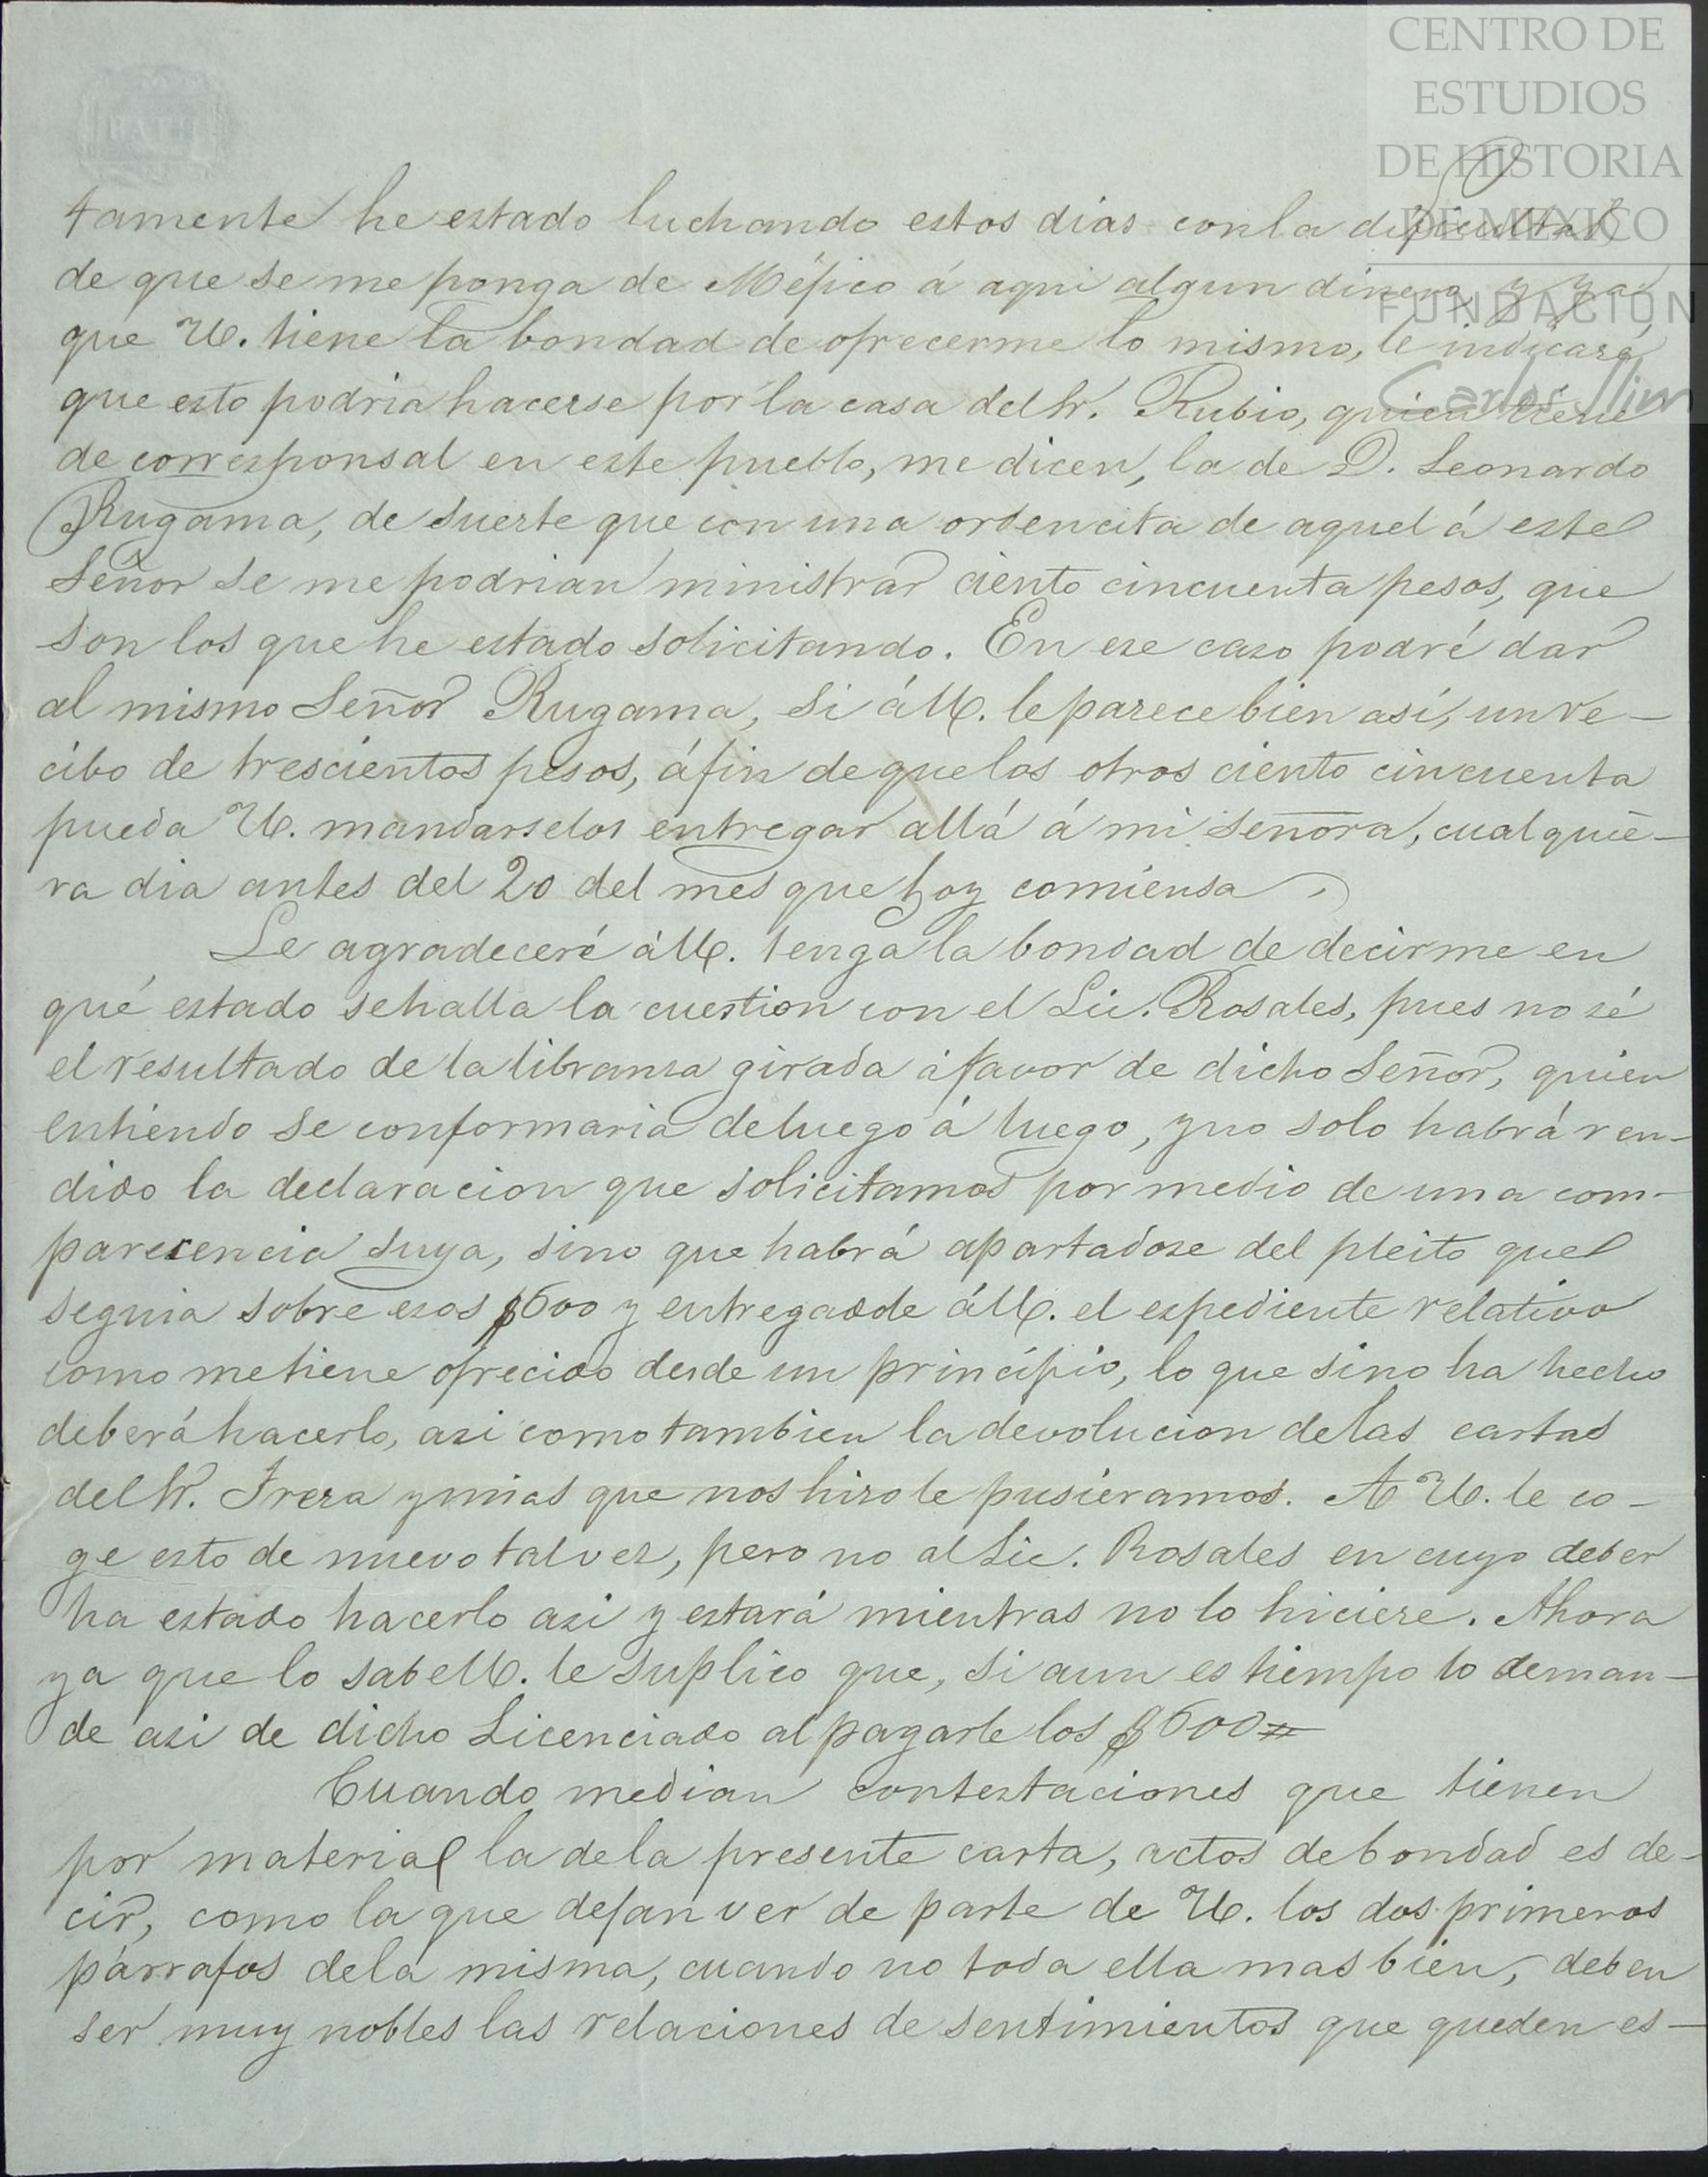 CENTRO DE
ESTUDIOS
DE HISTORIA
DE MEXICO
FUNDACIÓN
Carlos Slim
BATH
tamente he estado luchando estos dias con la dificultad
de que se me ponga de Méjico á aqui algun dinero, y ya
que U. tiene la bondad de ofrecerme lo mismo, le indicaré
que esto podria hacerse por la casa del Sr. Rubio, quien tiene
de corresponsal en este pueblo, me dicen, la de D. Leonardo
Rugama, de suerte que con una ordencita de aquel á este
Señor se me podrian ministrar ciento cincuenta pesos, que
son los que he estado solicitando. En ese caso podré dar
al mismo Señor Rugama, si á U. le parece bien así, un re-
cibo de trescientos pesos, áfin de que los otros ciento cincuenta
pueda U. mandarselos entregar allá á mi Señora, cualquie-
ra dia antes del 20 del mes que hoy comiensa.
Le agradeceré á U. tenga la bondad de decirme en
qué estado se halla la cuestion con el Lic. Rosales, pues no sé
el resultado de la libransa girada á favor de dicho Señor, quien
entiendo se conformaria de luego á luego, y no solo habrá ren-
dido la declaracion que solicitamos por medio de una com-
parecencia suya, sino que habrá apartadose del pleito que
seguia sobre esos $600 y entregadole á U. el espediente relativo
como me tiene ofrecido desde un principio, lo que si no ha hecho
deberá hacerlo, asi como tambien la devolucion de las cartas
del Sr. Ireza y mias que nos hizo le pusieramos. A U. le co-
ge esto de nuevo tal vez, pero no al Lic. Rosales en cuyo deber
ha estado hacerlo asi y estará mientras no lo hiciese. Ahora
ya que lo sabe U. le suplico que, si aun es tiempo lo deman-
de asi de dicho Licenciado al pagarle los $600=
Cuando median contestaciones que tienen
por material la de la presente carta, actos de bondad es de-
cir, como la que dejan ver de parte de U. los dos primeros
párrafos de la misma, cuando no toda ella mas bien, deben
ser muy nobles las relaciones de sentimientos que queden es-